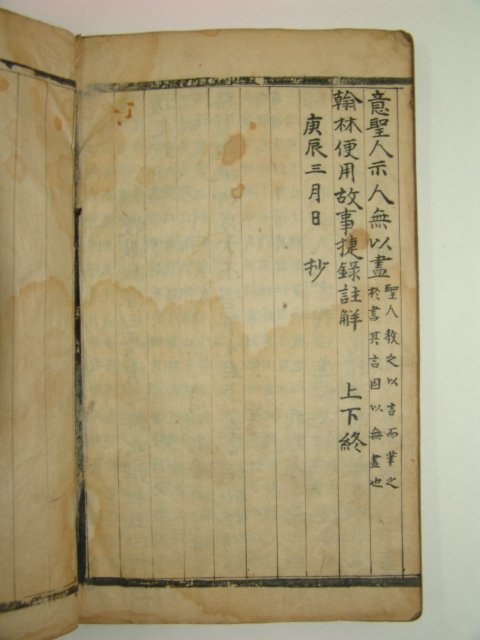 意聖人示人無以盡聖人教之以言而筆之於書其言固以無盡也
翰林便用故事捷錄註解 上下終
庚辰三月日 抄